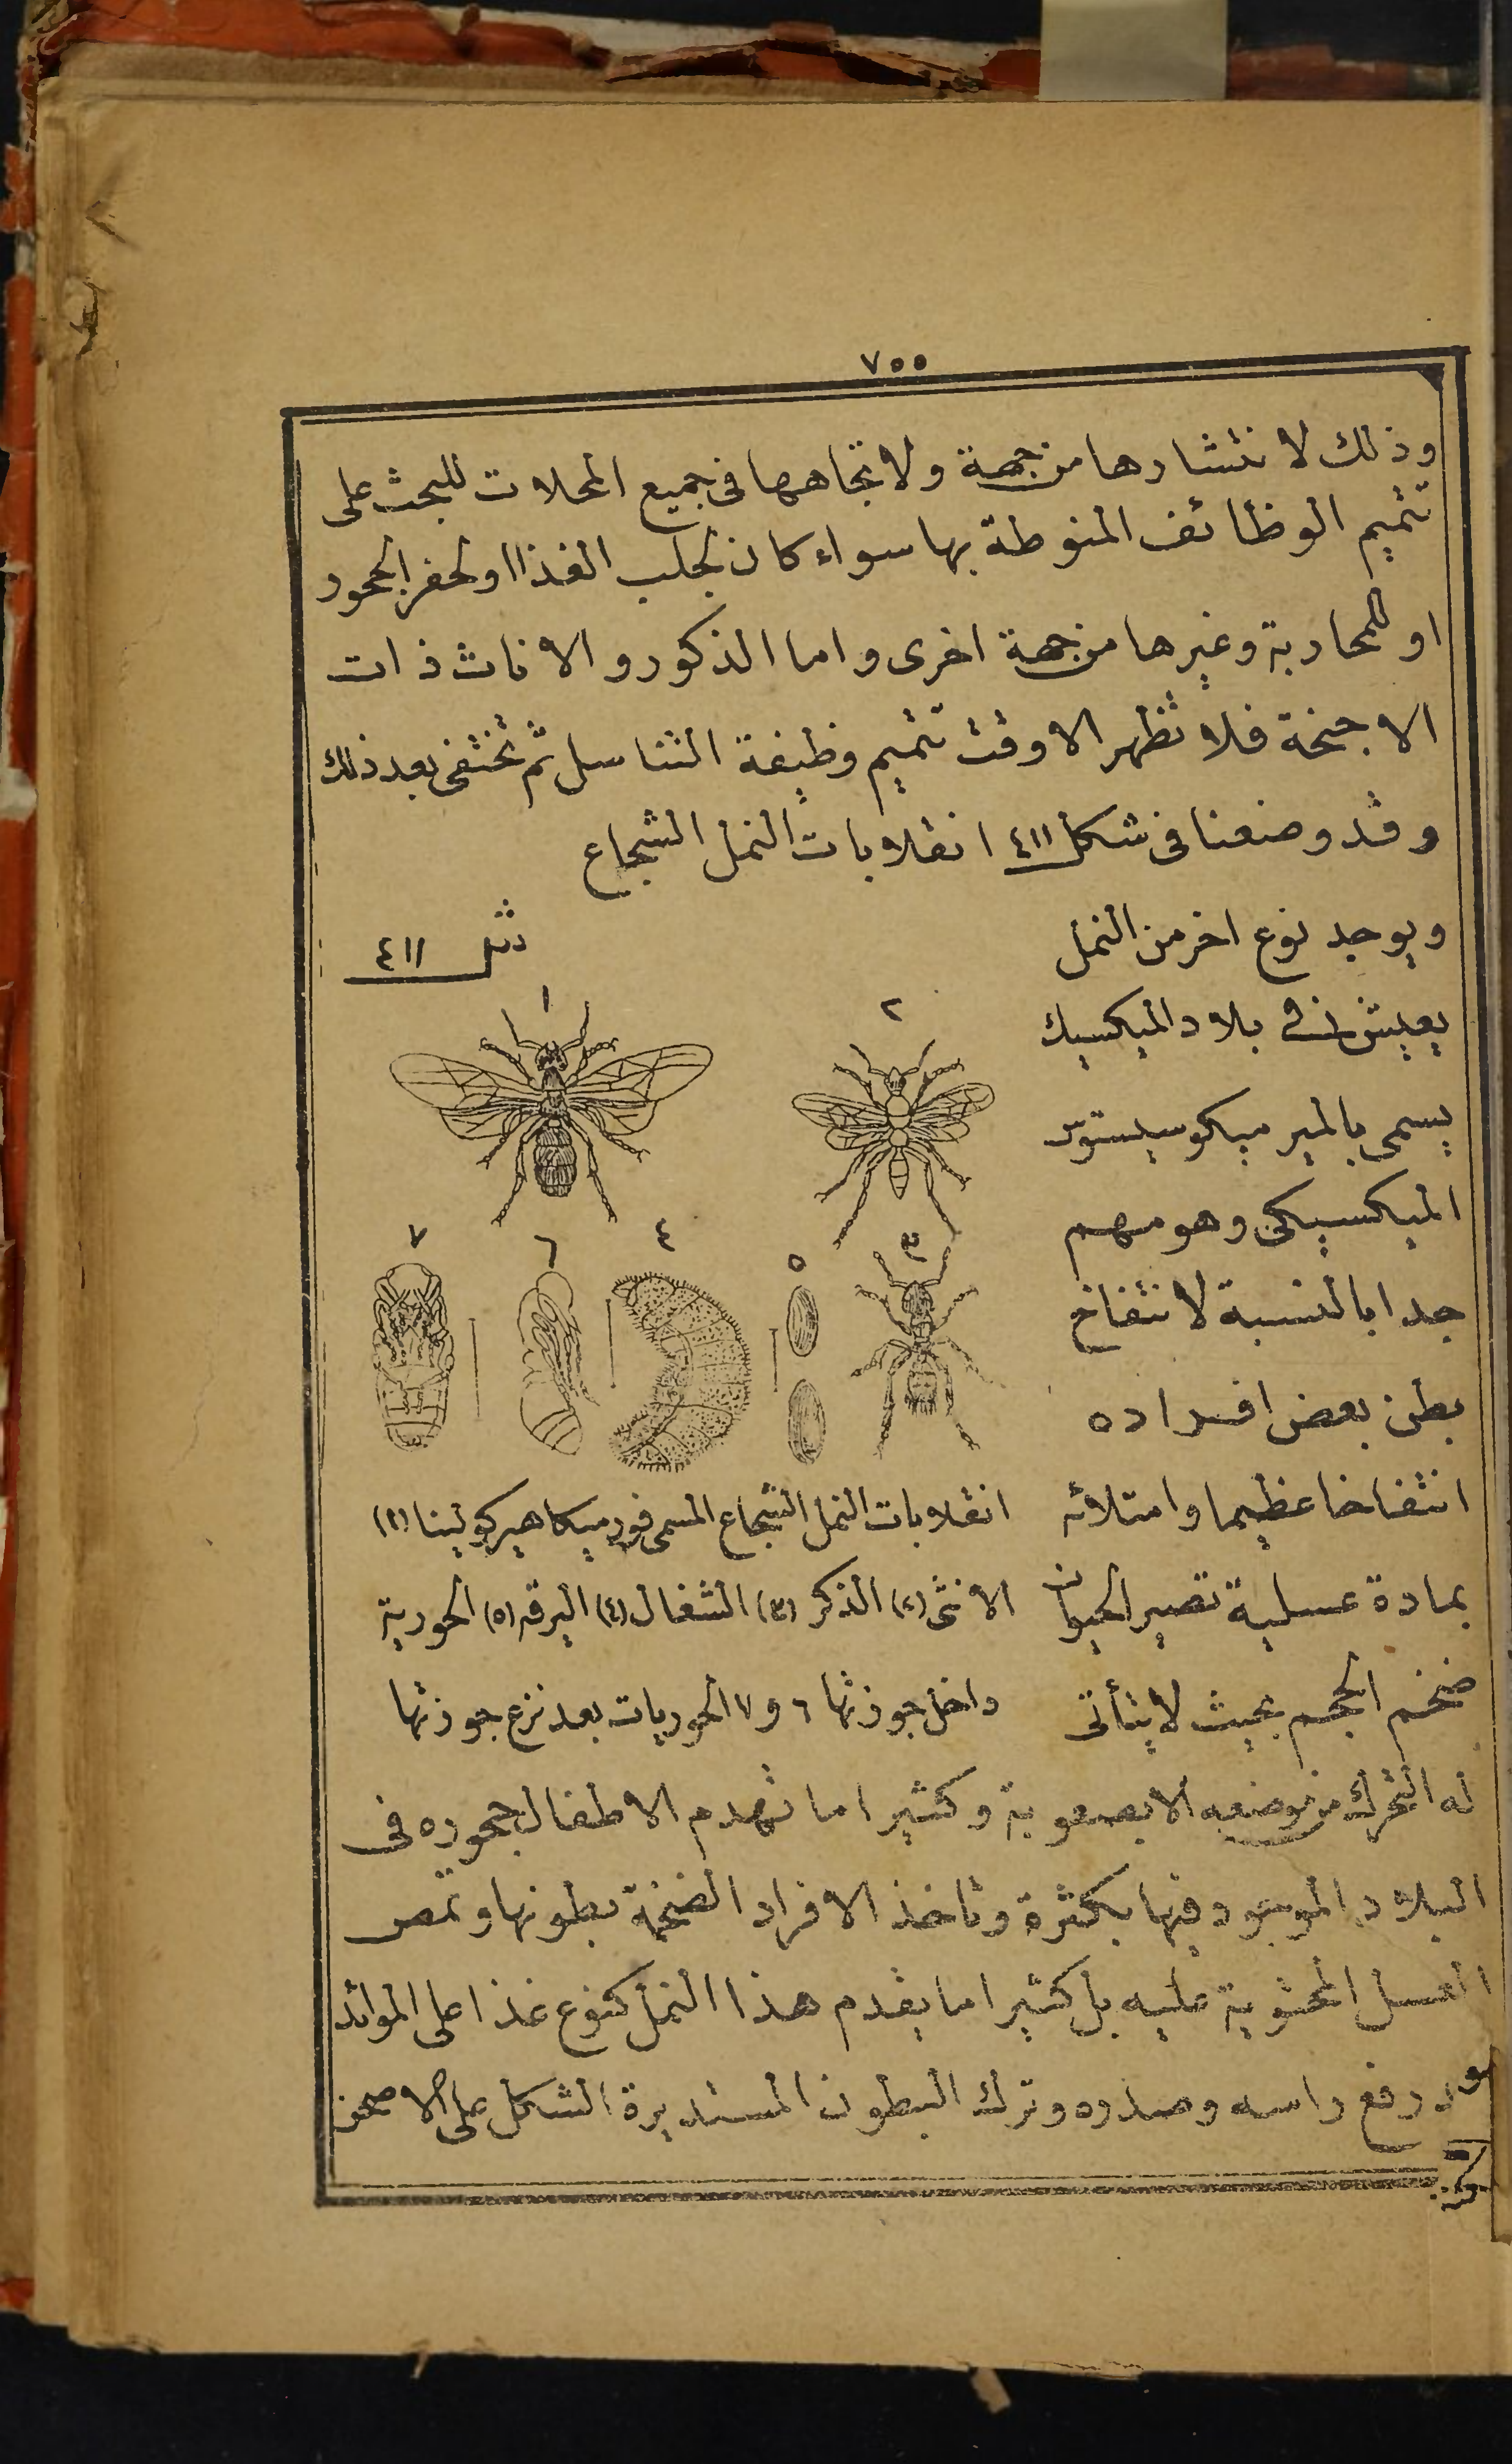 ٧٥٥
وذلك لانتشارها من جهة ولاتجاهها فى جميع المحلات للبحث على
تتميم الوظائف المنوطة بها سواء كان لجلب الغذا او لحفر الجحور
او للمحاربة وغيرها من جهة اخرى واما الذكور والاناث ذات
الاجنحة فلا تظهر الا وقت تتميم وظيفة التناسل ثم تختفى بعد ذلك
وقد وضعنا فى شكل ٤١١ انقلابات النمل الشجاع
ويوجد نوع اخر من النمل
يعيش فى بلاد الميكسيك
يسمى بالمير ميكوسيستوس
الميكسيكى وهو مهم
جدا بالنسبة لانتفاخ
بطن بعض افراده
انتفاخا عظيما وامتلائه
بمادة عسلية تصير الحيوان
ضخم الحجم بحيث لا يتأتى
شكل ٤١١
١
٢
٣
٥
٤
٦
٧
انقلابات النمل الشجاع المسمى فورميكا هيركولينا (١)
الانثى (٢) الذكر (٣) الشغال (٤) اليرقه (٥) الحورية
داخل جوزتها ٦ و ٧ الحوريات بعد نزع جوزتها
له التحرك من موضعه الا بصعوبة وكثيرا ما تهدم الاطفال جحوره فى
البلاد الموجود فيها بكثرة وتاخذ الافراد الضخمة بطونها وتمص
العسل المحتوية عليه بل كثيرا ما يقدم هذا النمل كنوع غذا على الموائد
رفع راسه وصدره وترك البطون المستديرة الشكل على الاصحن